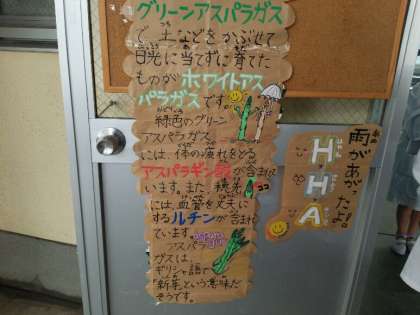 グリーンアスパラガス
で、土などをかぶせて
日光に当てずに育てた
ものがホワイトアス
パラガスです。
緑色のグリーン
アスパラガス
には、体の疲れをとる
アスパラギン酸が含まれ
います。また、穂先
には、血管を丈夫に
するルチンが含まれ
ています。
アスパラ
ガスは、
ギリシャ語で
「新芽」という意味だ
そうです。
雨があがっ
たよ!
H
H
A